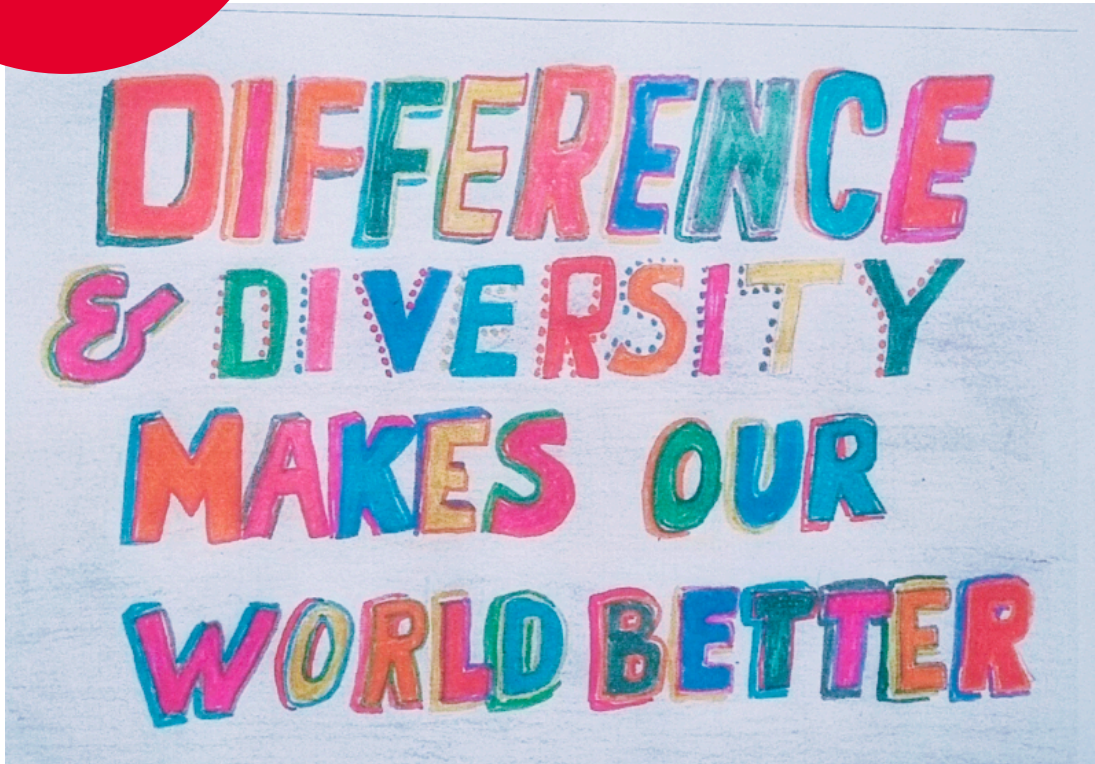 DIFFERENCE
& DIVERSITY
MAKES OUR
WORLD BETTER